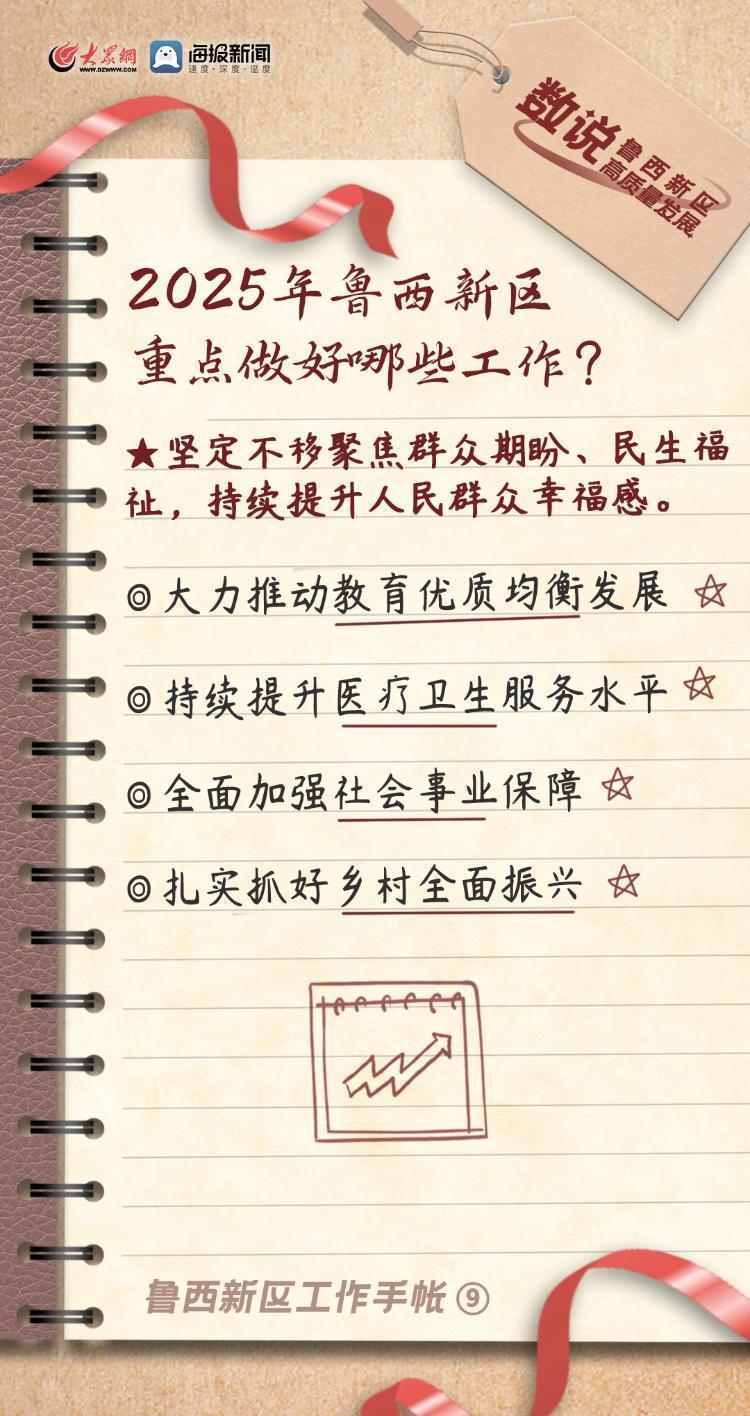 大眾網
WWW.DZWWW.COM
海报新闻
速度·深度·温度
数说
鲁西新区
高质量发展
2025年鲁西新区
重点做好哪些工作？
★坚定不移聚焦群众期盼、民生福
祉，持续提升人民群众幸福感。
◎大力推动教育优质均衡发展
◎持续提升医疗卫生服务水平
◎全面加强社会事业保障
◎扎实抓好乡村全面振兴
鲁西新区工作手帐⑨